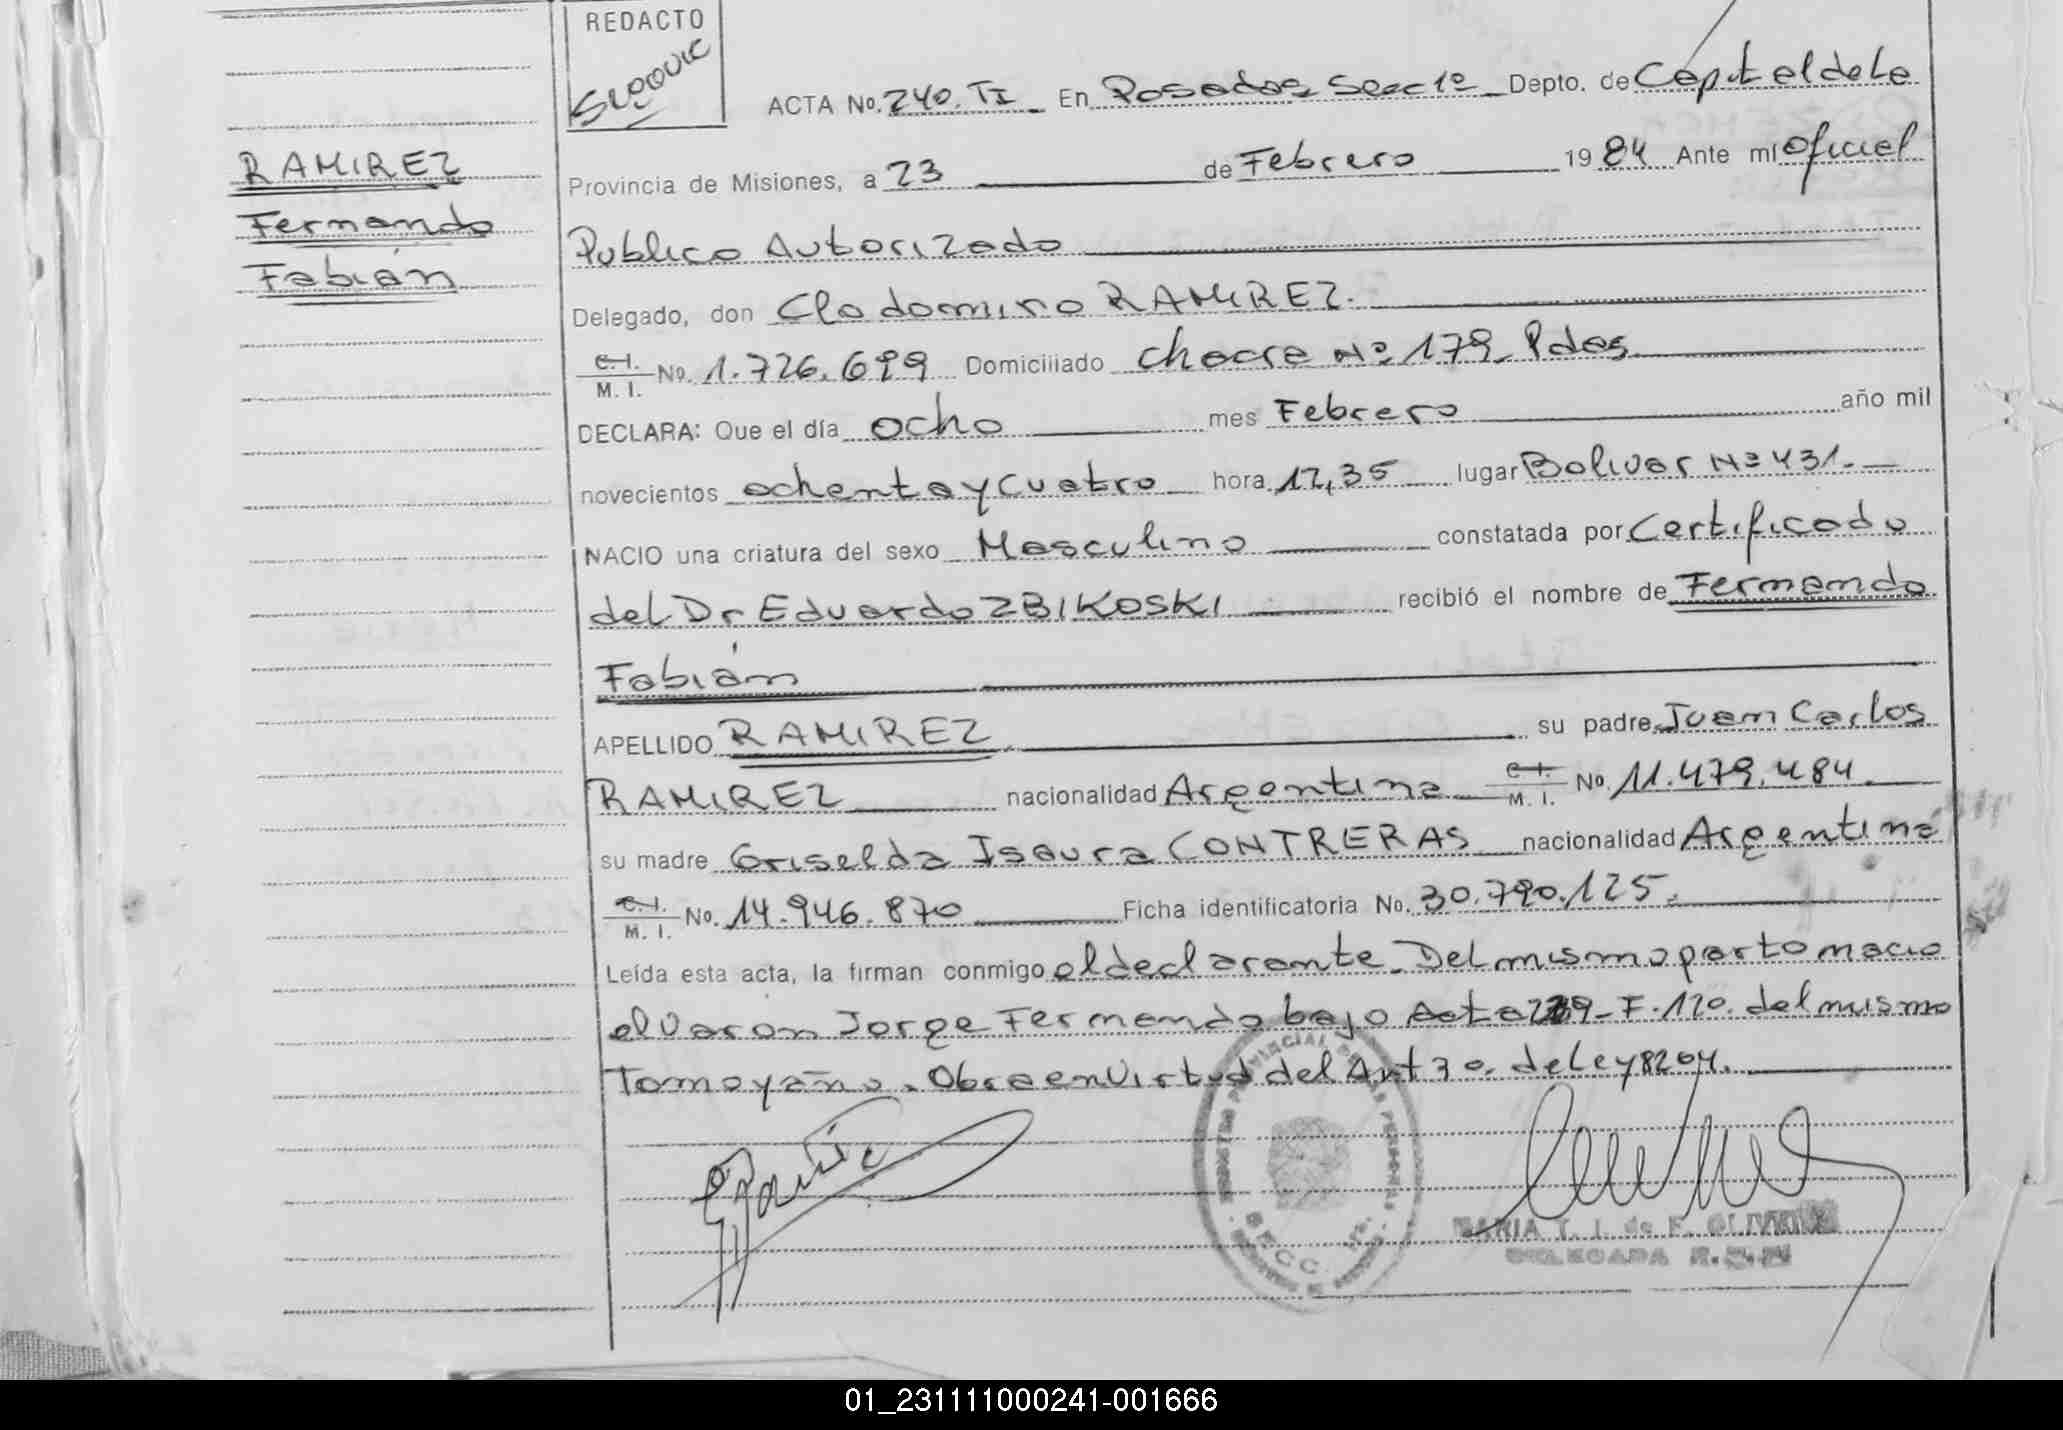 REDACTO
SLOOVIC
ACTA No. 240. TI En Posadas Secc 1º Depto. de Capital de la
RAMIREZ
Fernando
Fabián
Provincia de Misiones, a 23 de Febrero 1984 Ante mí Oficial
Publico Autorizado
Delegado, don Clodomiro RAMIREZ.
C. I. M. I. No. 1.726.699 Domiciliado Chacra Nº 179 Pdas
DECLARA: Que el día ocho mes Febrero año mil
novecientos ochenta y cuatro hora 12,35 lugar Bolivar Nº 431.
NACIO una criatura del sexo Masculino constatada por Certificado
del Dr Eduardo ZBIKOSKI recibió el nombre de Fernando
Fabián
APELLIDO RAMIREZ su padre Juan Carlos
RAMIREZ nacionalidad Argentina C. I. M. I. No. 11.479.484.
su madre Griselda Isaura CONTRERAS nacionalidad Argentina
C. I. M. I. No. 14.946.870 Ficha identificatoria No. 30.790.125.
Leída esta acta, la firman conmigo el declarante. Del mismo parto nacio
el Varon Jorge Fernando bajo Acta 239-F.120. del mismo
Tomo y año. Obra en Virtud del Art 30. de Ley 8204.
MARIA T. I. de F. OLIVEIRA
DELEGADA R.
01_231111000241-001666